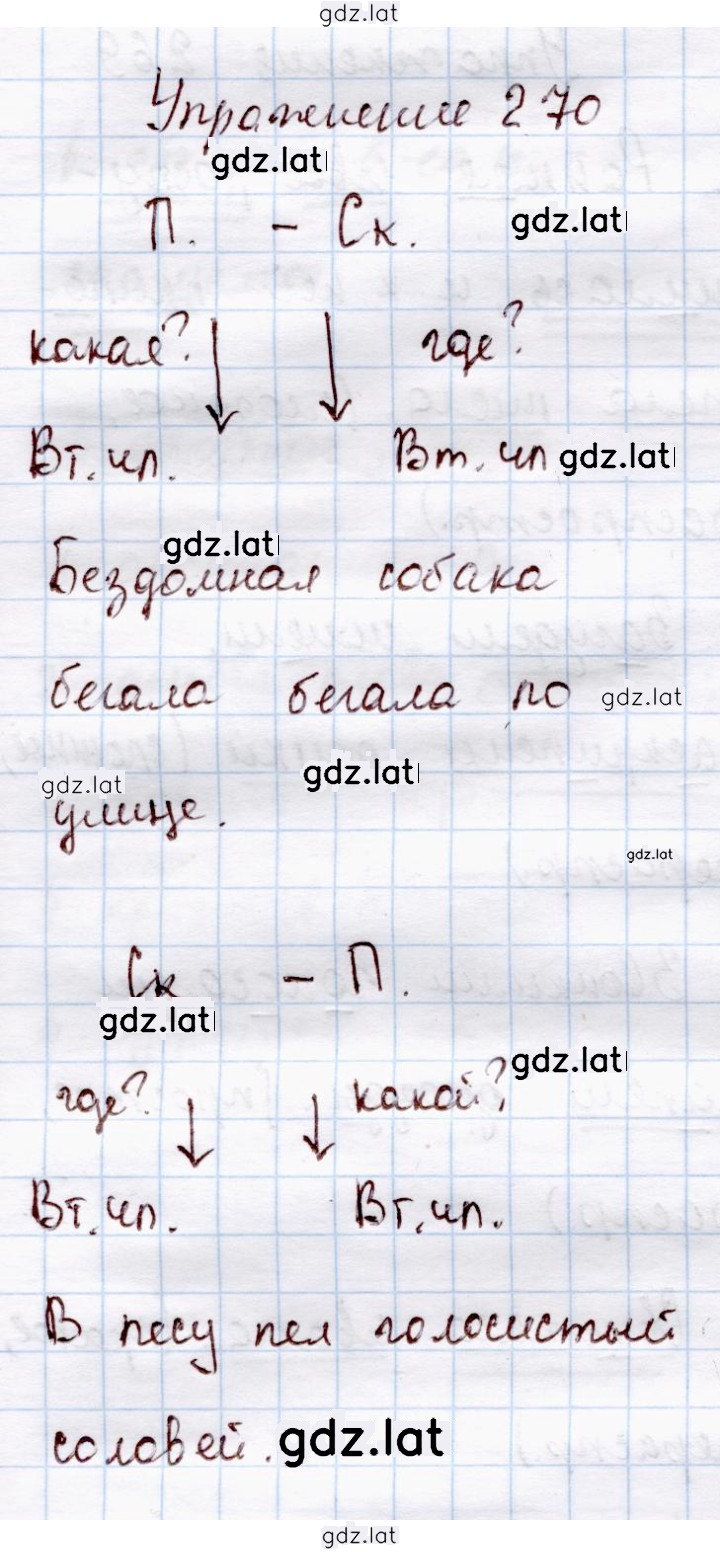 gdz.lat
Упражнение 270
gdz.lat
П. – Ск. gdz.lat
какая? где?
Вт. чл. Вт. чл gdz.lat
gdz.lat
Бездомная собака
бегала бегала по gdz.lat
gdz.lat gdz.lat
улице.
gdz.lat
Ск – П.
gdz.lat
gdz.lat
где? какой?
Вт. чл. Вт. чл.
В лесу пел голосистый
соловей. gdz.lat
gdz.lat